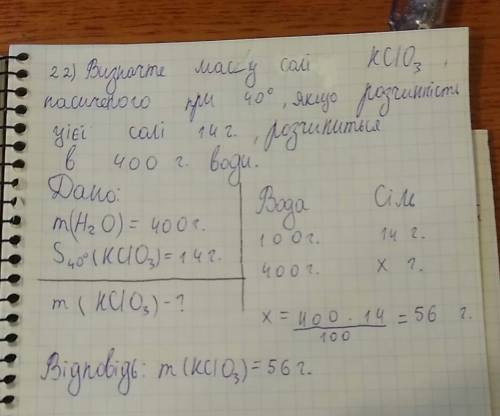 22) Визначте масу солі KClO3,
насиченого при 40°, якщо розчинність
цієї солі 14 г., розчиниться
в 400 г. води.
Дано:
m(H2O) = 400 г.
S40°(KClO3) = 14 г.
m (KClO3) - ?
Вода Сіль
100 г. 14 г.
400 г. x г.
x = 400 · 14 / 100 = 56 г.
Відповідь: m(KClO3) = 56 г.